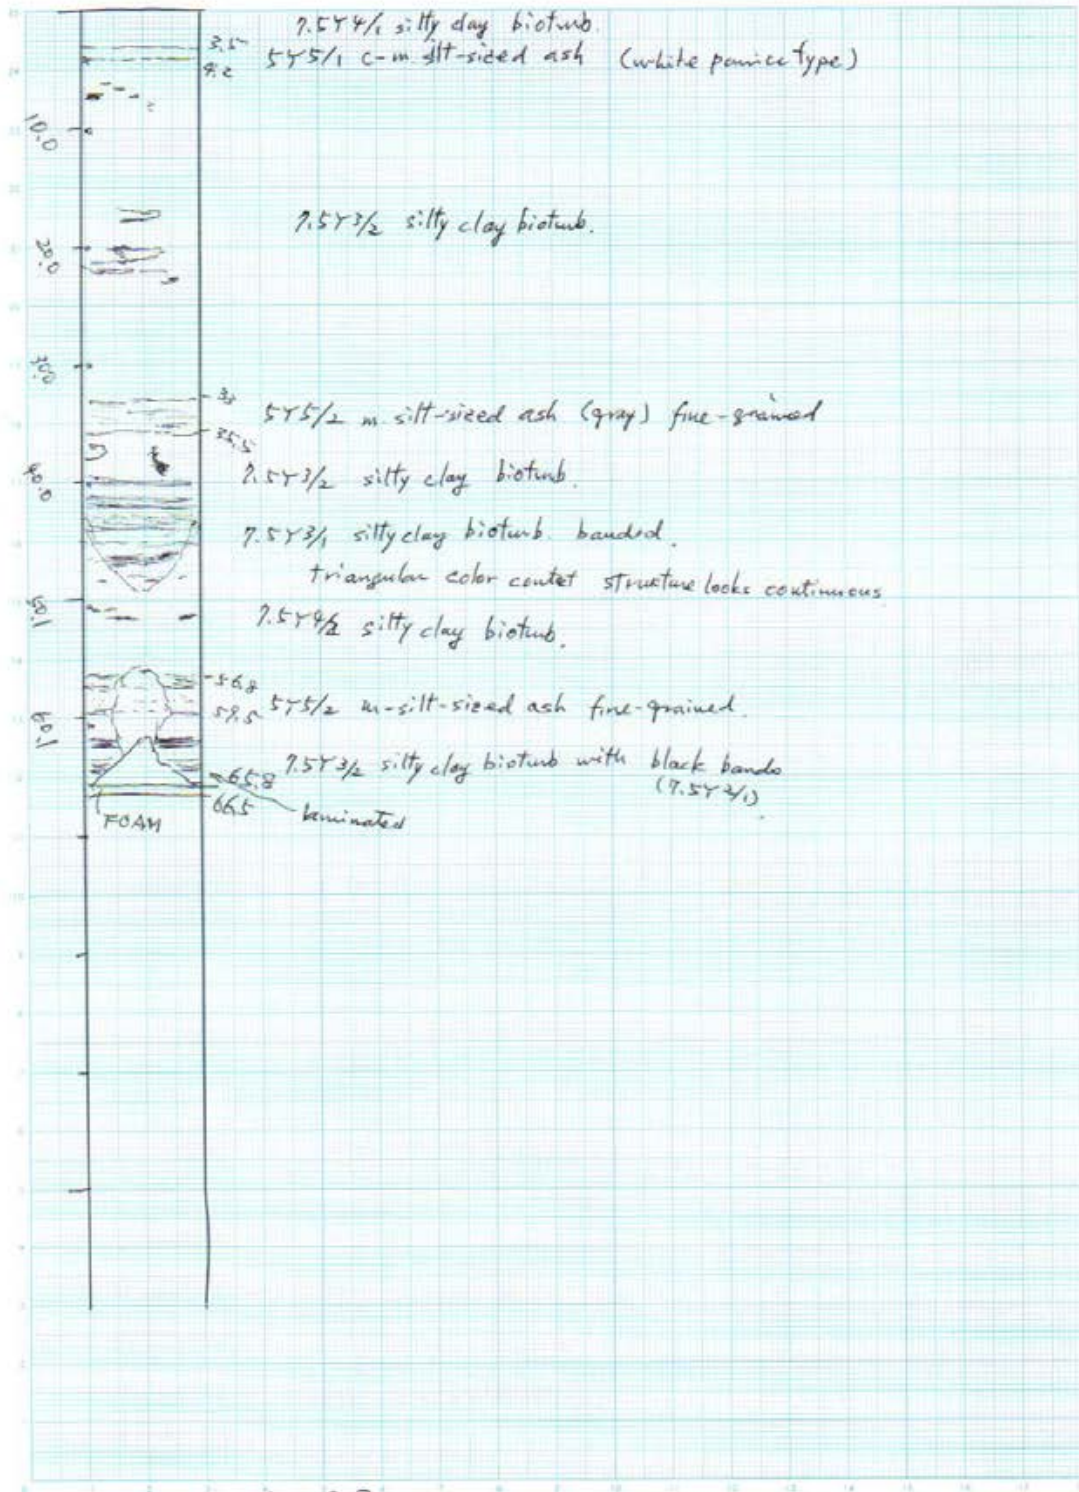 7.5Y4/1 silty clay bioturb.
3.5
5Y5/1 c-m silt-sized ash (white pumice type)
4.2
10.0
7.5Y3/2 silty clay bioturb.
20.0
30.0
33
5Y5/2 m silt-sized ash (gray) fine-grained
35.5
40.0
7.5Y3/2 silty clay bioturb.
7.5Y3/1 silty clay bioturb. banded.
triangular color contct structure looks continuous
50.1
7.5Y4/2 silty clay bioturb.
56.8
5Y5/2 m-silt-sized ash fine-grained.
59.5
60.1
7.5Y3/2 silty clay bioturb with black bands
(7.5Y2/1)
65.8
66.5
laminated
FOAM